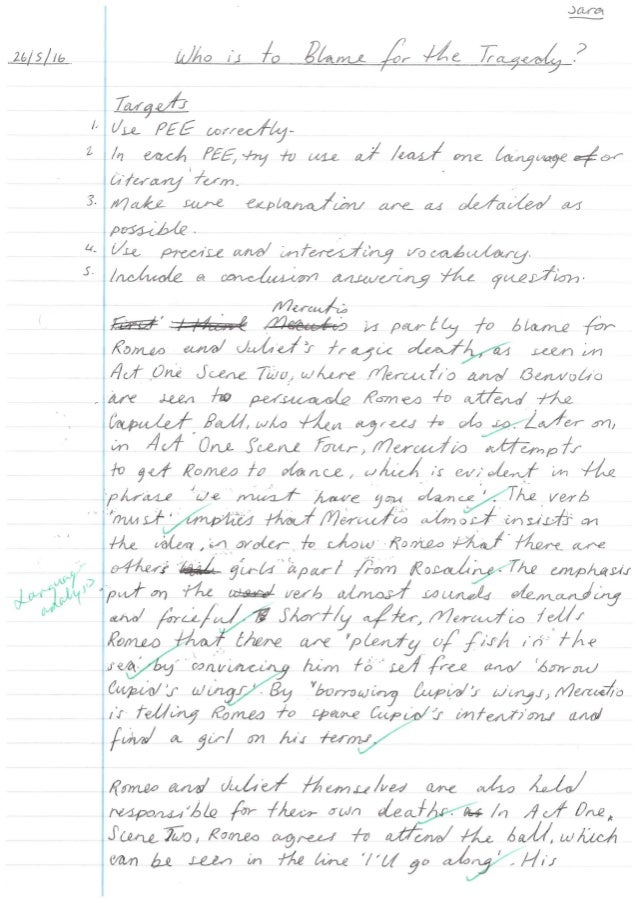 Sara
26/5/16 Who is to Blame for the Tragedy?
Targets
1. Use PEE correctly.
2 In each PEE, try to use at least one language of or
literary term.
3. Make sure explanations are as detailed as
possible.
4. Use precise and interesting vocabulary.
5. Include a conclusion answering the question.
Mercutio
First I think Mercutio is partly to blame for
Romeo and Juliet's tragic death, as seen in
Act One Scene Two, where Mercutio and Benvolio
are seen to persuade Romeo to attend the
Capulet Ball, who then agrees to do so. Later on,
in Act One Scene Four, Mercutio attempts
to get Romeo to dance, which is evident in the
phrase 'we must have you dance'. The verb
'must' implies that Mercutio almost insists on
the idea, in order to show Romeo that there are
others girls apart from Rosaline. The emphasis
Language analysis
put on the word verb almost sounds demanding
and forceful. Shortly after, Mercutio tells
Romeo that there are 'plenty of fish in the
sea' by convincing him to 'set free and 'borrow
Cupid's wings'. By "borrowing Cupid's wings, Mercutio
is telling Romeo to spare Cupid's intentions and
find a girl on his terms.
Romeo and Juliet themselves are also held
responsible for their own deaths. as In Act One,
Scene Two, Romeo agrees to attend the ball, which
can be seen in the line 'I'll go along'. His